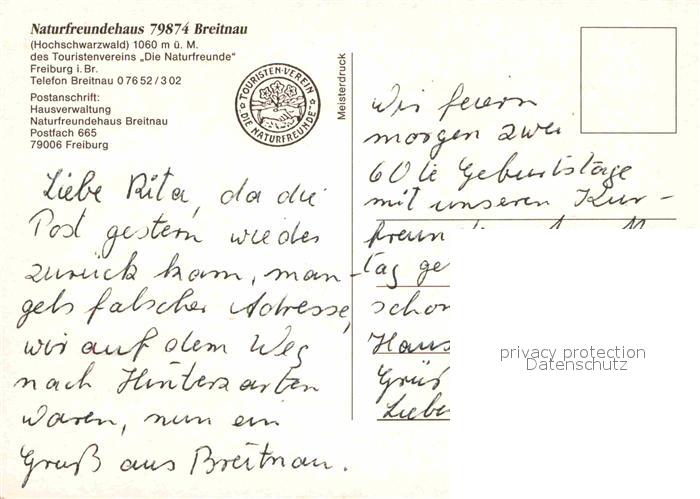 Naturfreundehaus 79874 Breitnau
(Hochschwarzwald) 1060 m ü. M.
des Touristenvereins „Die Naturfreunde“
Freiburg i. Br.
Telefon Breitnau 0 76 52 / 3 02
Postanschrift:
Hausverwaltung
Naturfreundehaus Breitnau
Postfach 665
79006 Freiburg
TOURISTEN-VEREIN
DIE NATURFREUNDE
Meisterdruck
Liebe Rita, da die
Post gestern wieder
zurück kam, man-
gels falscher Adresse,
wir auf dem Weg
nach Hinterzarten
waren, nun ein
Gruß aus Breitnau.
Wir feiern
morgen zwei
60te Geburtstage
mit unseren Kur-
freun
tag ge
schon
Haus
Grüß
Liebe
privacy protection
Datenschutz